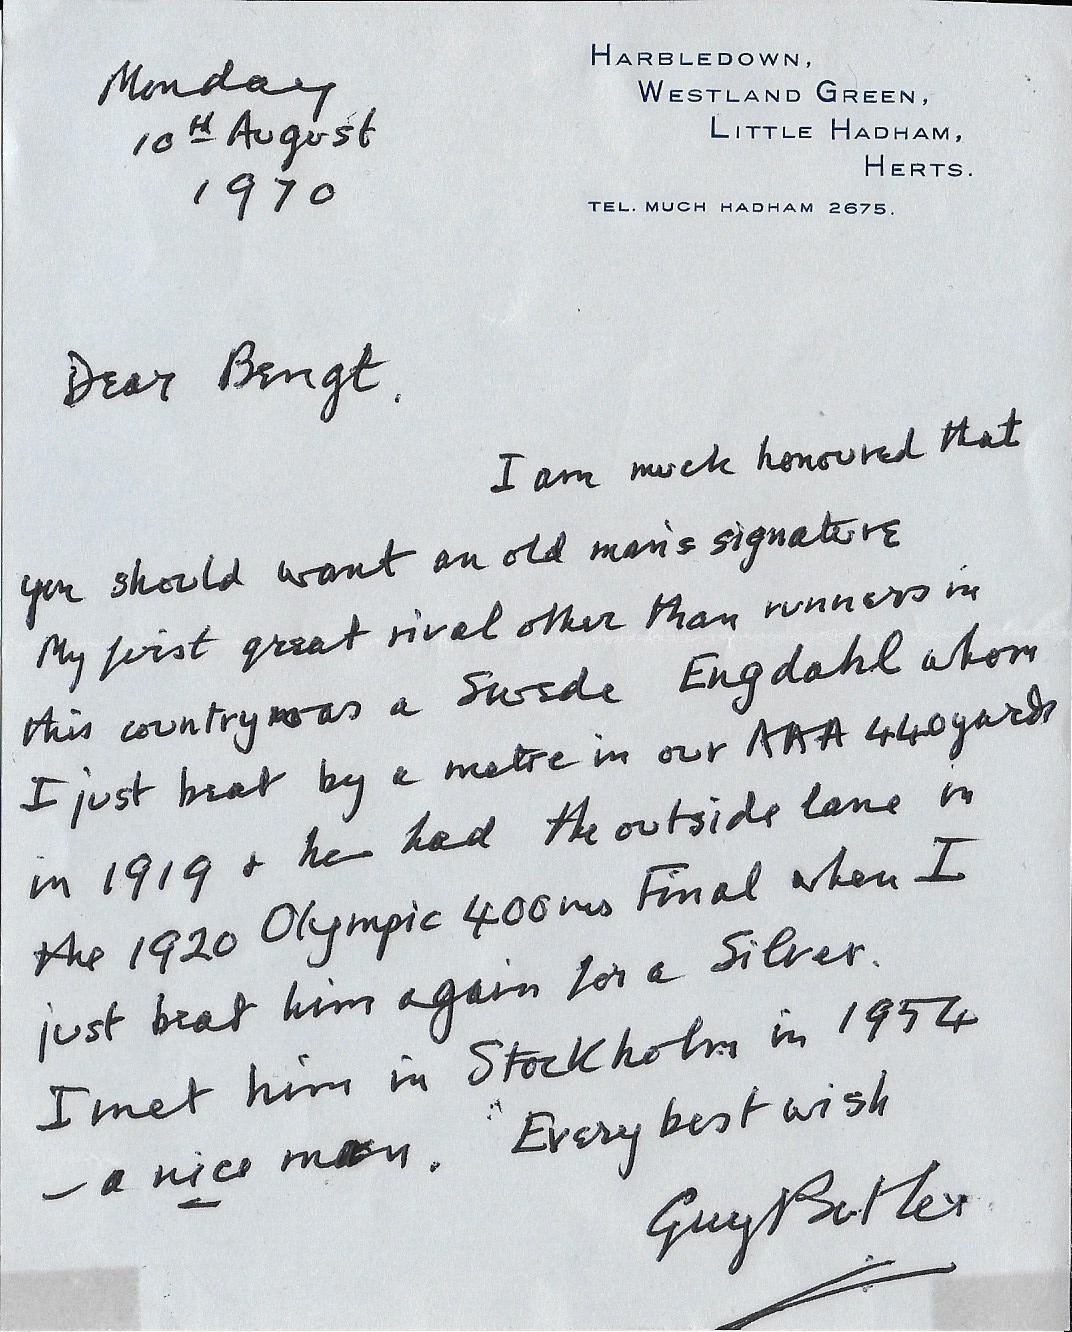 Monday
10th August
1970
HARBLEDOWN,
WESTLAND GREEN,
LITTLE HADHAM,
HERTS.
TEL. MUCH HADHAM 2675.
Dear Bengt.
I am much honoured that
you should want an old man's signature
My first great rival other than runners in
this country was a Swede Engdahl whom
I just beat by a metre in our AAA 440 yards
in 1919 & he had the outside lane in
the 1920 Olympic 400ms Final when I
just beat him again for a Silver.
I met him in Stockholm in 1954
– a nice man. Every best wish
Guy Butler